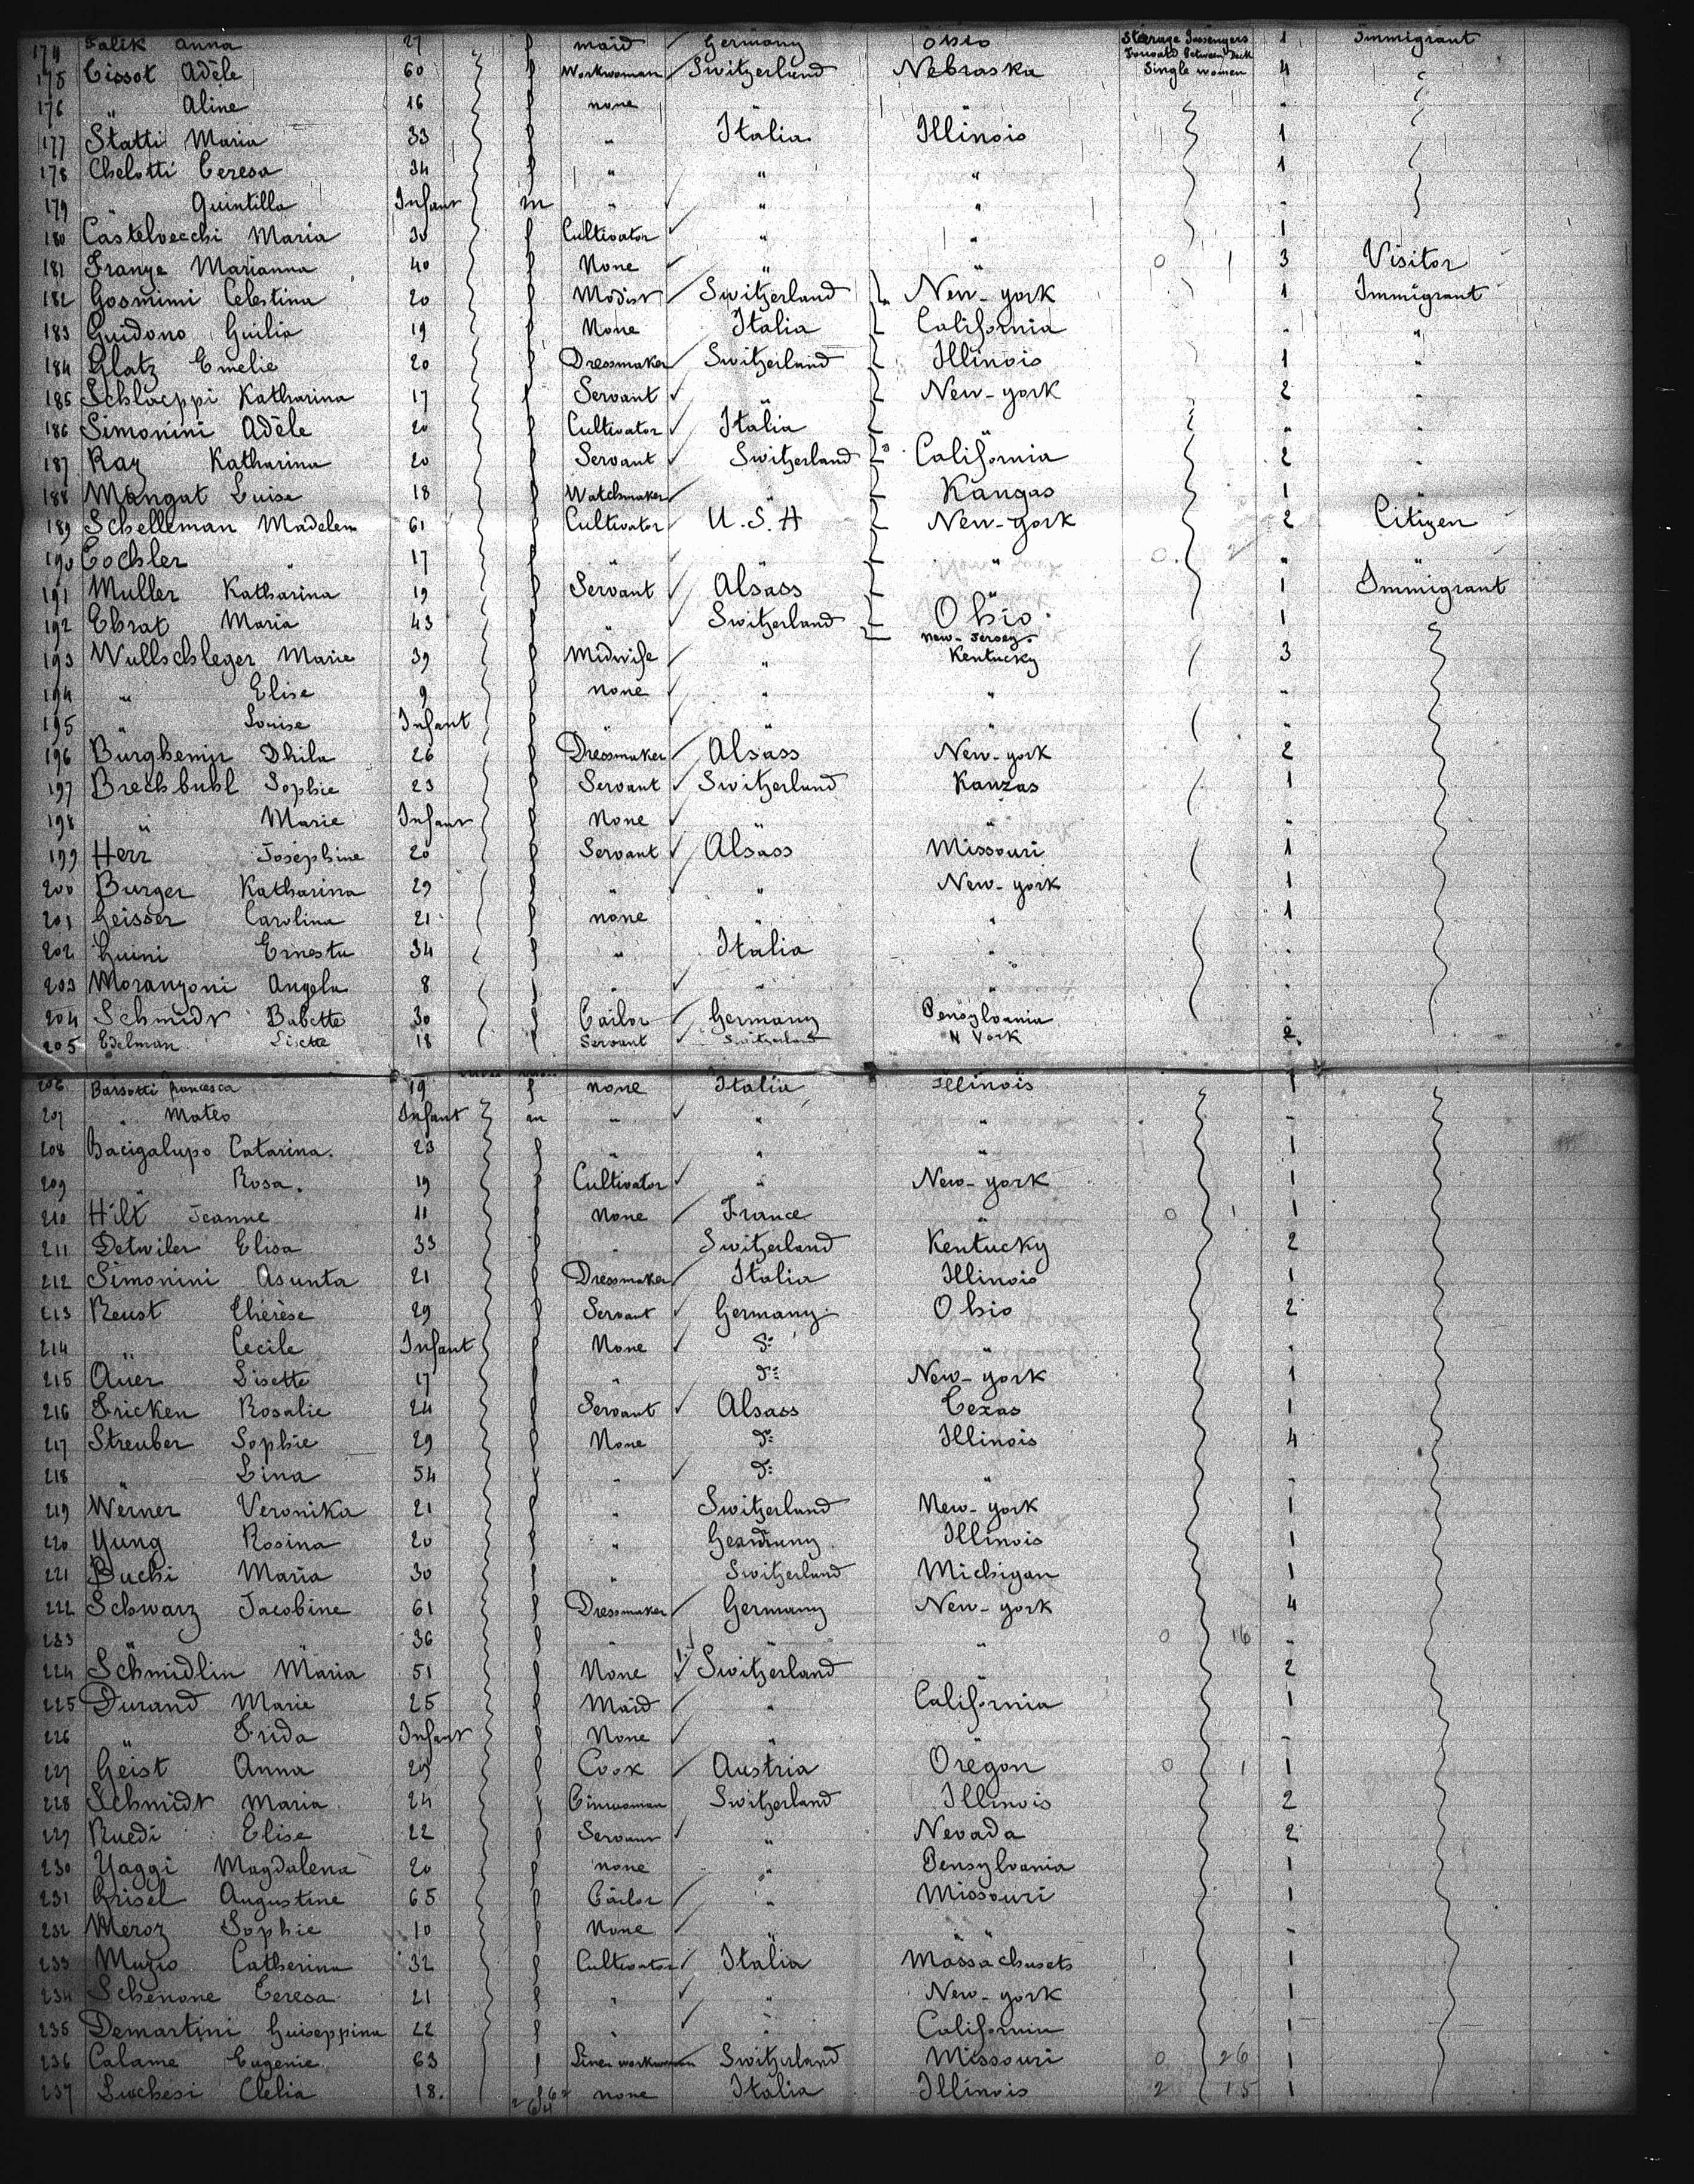 174 Falik Anna 27 f maid Germany Ohio Steerage Passengers Forward Between Deck 1 Immigrant
175 Tissot Adèle 60 f Workwoman Switzerland Nebraska Single women 4
176 " Aline 16 f none " " "
177 Statti Maria 33 f " Italia Illinois 1
178 Chelotti Teresa 34 f " " " 1
179 " Quintilla Infant m " " " "
180 Castelvecchi Maria 30 f Cultivator " " 1
181 Franye Marianna 40 f None " " 0 1 3 Visitor
182 Gosmimi Celestina 20 f Modist Switzerland New-york 1 Immigrant
183 Guidono Guilia 19 f None Italia California " "
184 Glatz Emelie 20 f Dressmaker Switzerland Illinois 1 "
185 Schlaeppi Katharina 17 f Servant " New-york 2 "
186 Simonini Adèle 20 f Cultivator Italia " " "
187 Ray Katharina 20 f Servant Switzerland California 2 "
188 Mangat Luise 18 f Watchmaker " Kangas 1 "
189 Schelleman Madelem 61 f Cultivator U.S.A New-york 2 Citizen
190 Tochler " 17 f " " " 0 2 " "
191 Muller Katharina 19 f Servant Alsass " 1 Immigrant
192 Ebrat Maria 43 f " Switzerland Ohio 1
New-Jersey
193 Wullschleger Marie 39 f Midwife " Kentucky 3
194 " Elise 9 f none " " "
195 " Louise Infant f " " " "
196 Burghemir Dhila 26 f Dressmaker Alsass New-york 2
197 Brechbuhl Sophie 23 f Servant Switzerland Kanzas 1
198 " Marie Infant f None " " "
199 Herr Joséphine 20 f Servant Alsass Missouri 1
200 Burger Katharina 29 f " " New-york 1
201 Geisser Carolina 21 f none " " 1
202 Guini Ernesta 34 f " Italia " "
203 Moranzoni Angela 8 f " " " "
204 Schmidt Babette 30 f Tailor Germany Pensylvania "
205 Edelman Lisette 18 f Servant Switzerland N York 2
206 Barsotti francesca 19 f none Italia Illinois 1
207 " Mateo Infant m " " " "
208 Bacigalupo Catarina. 23 f " " " 1
209 " Rosa. 19 f Cultivator " New-york 1
210 Hilt Jeanne 11 f None France " 0 1 1
211 Detwiler Elisa 33 f " Switzerland Kentucky 2
212 Simonini Asunta 21 f Dressmaker Italia Illinois 1
213 Reust Thérèse 29 f Servant Germany Ohio 2
214 " Cecile Infant f None do " "
215 Auer Lisette 17 f " do New-york 1
216 Fricken Rosalie 24 f Servant Alsass Texas 1
217 Streuber Sophie 29 f None do Illinois 4
218 " Lina 54 f " do " "
219 Werner Veronika 21 f " Switzerland New-york 1
220 Yung Rosina 20 f " Germany Illinois 1
221 Buchi Maria 30 f " Switzerland Michigan 1
222 Schwarz Jacobine 61 f Dressmaker Germany New-york 4
223 " " 36 f " " " 0 16 "
224 Schmidlin Maria 51 f None Switzerland " 2
225 Durand Marie 25 f Maid " California 1
226 " Frida Infant f None " " "
227 Geist Anna 29 f Cook Austria Oregon 0 1 1
228 Schmidt Maria 24 f Switzerland Illinois 2
229 Ruedi Elise 22 f Servant " Nevada 2
230 Yaggi Magdalena 20 f none " Pensylvania 1
231 Grisel Augustine 65 f Tailor " Missouri 1
232 Meroz Sophie 10 f None " " "
233 Muzio Catherina 32 f Cultivator Italia Massachusets 1
234 Schenone Teresa 21 f " " New-york 1
235 Demartini Guiseppina 22 f " " California 1
236 Calame Eugenie 63 f Linen workwoman Switzerland Missouri 0 26 1
237 Luchesi Clelia 18. f none Italia Illinois 2 15 1